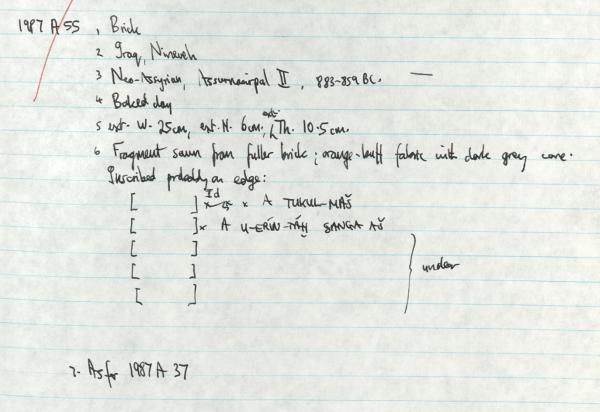 1987 A 55 , Brick
2 Iraq, Nineveh
3 Neo-Assyrian, Assurnasirpal II, 883-859 BC. —
4 Baked clay
5 ext. W. 25cm, ext. H. 6cm, ext. Th. 10.5cm.
6 Fragment sawn from fuller brick; orange-buff fabric with dark grey core.
Inscribed probably on edge:
[ ] x x A TUKUL-MAŠ
[ ] x A U-ERÍN-TÁḪ SANGA AŠ
[ ]
[ ] under
[ ]
7. As for 1987 A 37